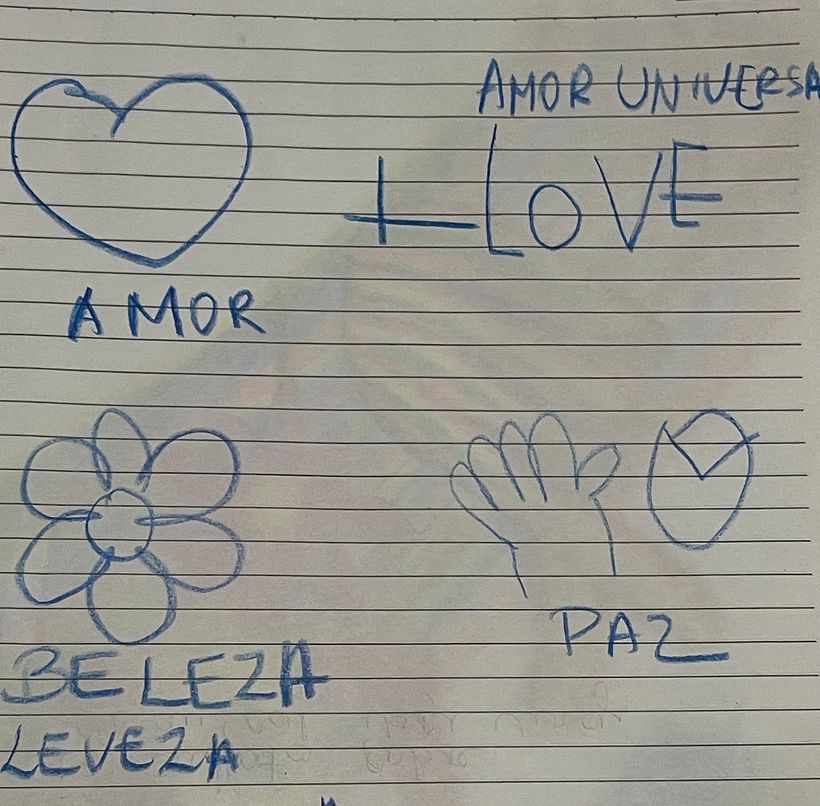 AMOR UNIVERSA
+LOVE
AMOR
PAZ
BELEZA
LEVEZA